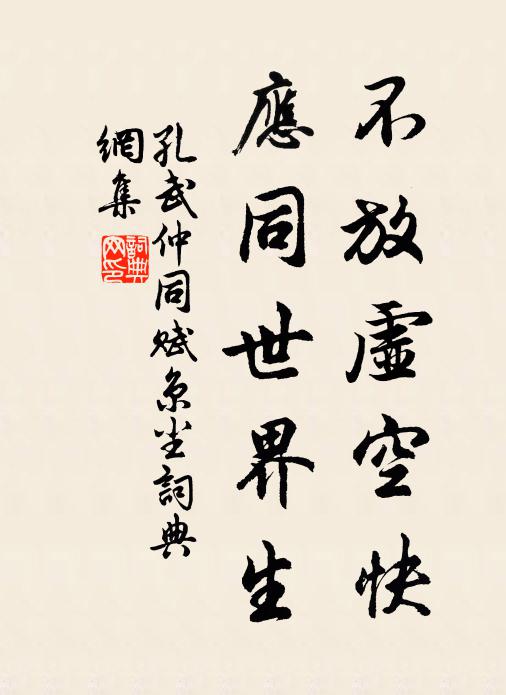 不放虛空快
應同世界生
孔武仲同賦京塵詞典
網集
詞典网印